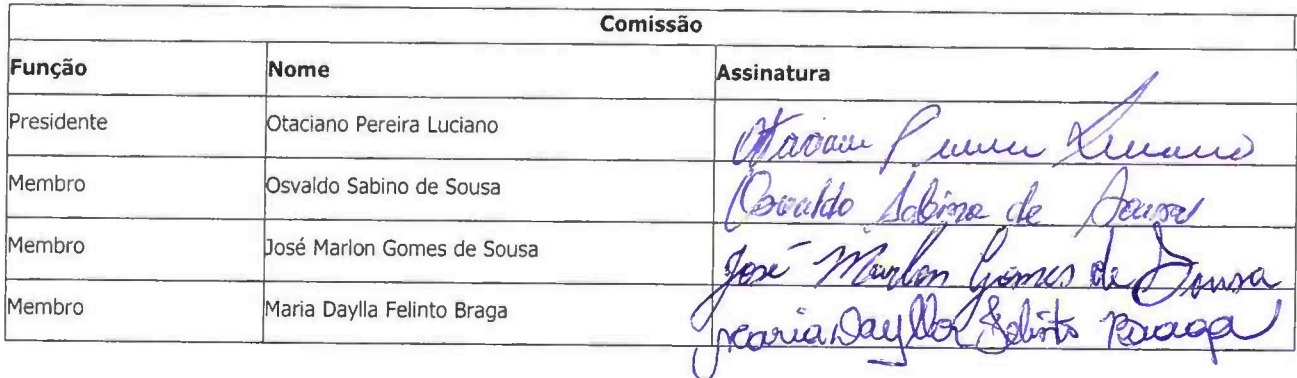 Comissão
Função Nome Assinatura
Presidente Otaciano Pereira Luciano Otaciano Pereira Luciano
Membro Osvaldo Sabino de Sousa Osvaldo Sabino de Sousa
Membro José Marlon Gomes de Sousa José Marlon Gomes de Sousa
Membro Maria Daylla Felinto Braga Maria Daylla Felinto Braga